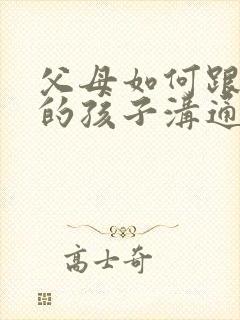 父母如何跟
的孩子溝通
高士奇